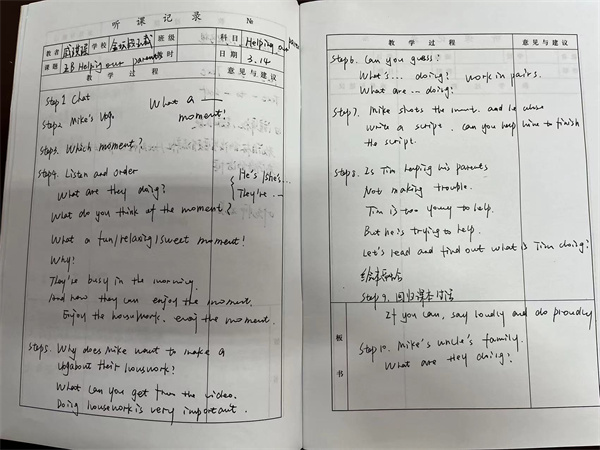 听课记录 №
教者 学校 班级 科目 Helping our parents
课题 2B Helping our parents 课时 日期 3.14
教学过程 意见与建议
Step1 Chat What a —
Step2. Mike's Vlog. moment!
Step3. Which moment?
Step4. Listen and order He's/She's...
What are they doing? They're ...
What do you think of the moment?
What a fun/relaxing/sweet moment!
Why?
They're busy in the morning.
And how they can enjoy the moment.
Enjoy the housework. enjoy the moment.
Step5. Why does Mike want to make a
vlog about their housework?
What can you get from the video.
Doing housework is very important.
教学过程 意见与建议
Step6. Can you guess?
What's ... doing? work in pairs.
What are ... doing?
Step7. Mike shots the and he also
write a script. can you help him to finish
the script.
Step8. Is Tim helping his parents
Not making trouble.
Tim is too young to help.
But he is trying to help.
Let's read and find out what is Tim doing?
Step9. 回归课本
If you can, say loudly and do proudly
板书
Step10. Mike's uncle's family.
What are they doing?